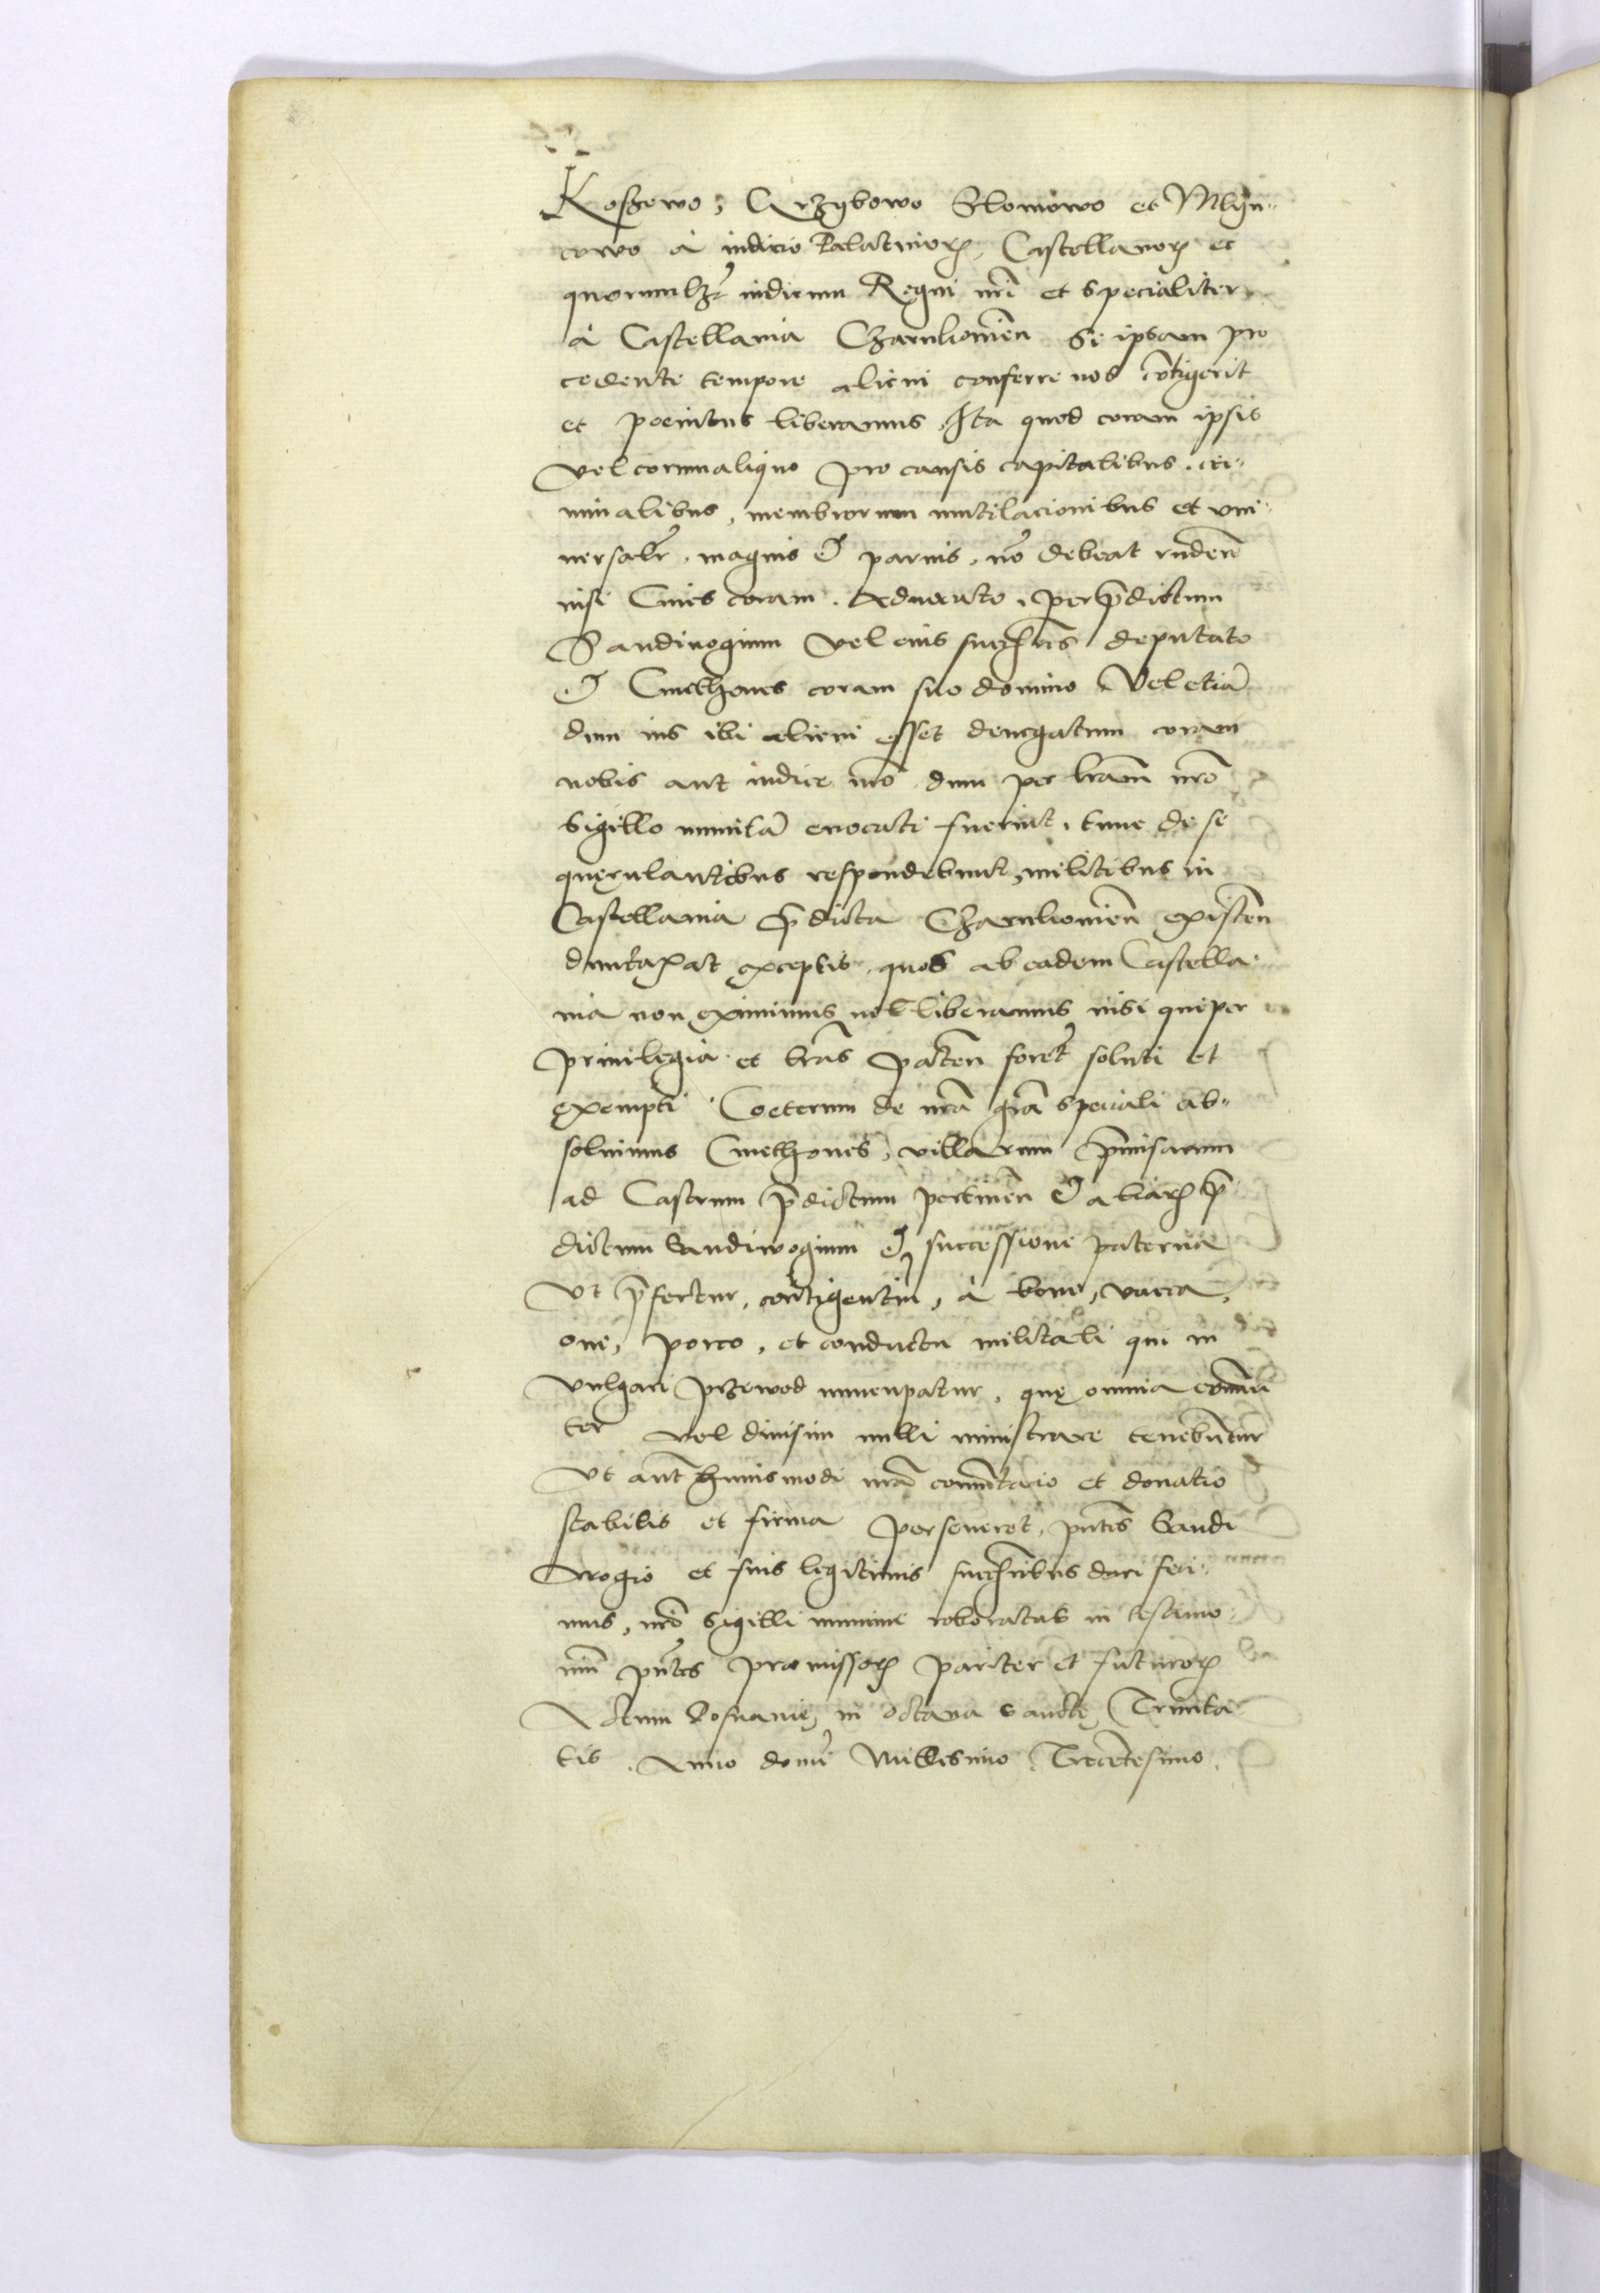 Koszewo, Grzybowo Slomowo et Mlyn-
cowo à iudicio Palatinorum, Castellanorum et
quorumlibet iudicum Regni nri et specialiter
à Castellania Czarnkowien Si ipsam pro
cedente tempore alicui conferre nos cōtigerit
et poenitus liberamus Ita quod coram ipsis
vel eorum aliquo pro causis capitalibus, cri-
minalibus, membrorum mutilacionibus et vni
uersalr, magnis & paruis, nō debeat rndere
nisi Ciues coram Aduocato, per p̄dictum
Sandiuogium vel eius succr̄es deputato
& Cmethones coram suo domino Vel etiā
dum ius ibi alicui esset denegatum coram
nobis aut iudice nrō dum per lram nrō
Sigillo munitā euocati fuerint, tunc de se
querulantibus respondebunt, militibus in
Castellania p̄dicta Czarnkowien existen
duntaxat exceptis, quos ab eadem Castella
nia non eximimus vel liberamus nisi qui per
priuilegia et lras paten forēt soluti et
exempti Coeterum de nrā grā speciali ab-
soluimus Cmethones, villarum p̄missarum
ad Castrum p̄dictum pertinen & aliarum p̄
dictum Sandiwogium ex successione paterna
Vt p̄fertur, contigentiū, à boue, vacca,
oue, porco, et conductu militali qui in
vulgari przewod nuncupatur, quę omnia com̄uni
ter vel diuisim nulli ministrare tenebuntur
Vt aut huiusmodi nrā comutacio et donatio
stabilis et firma perseueret, pntes Sandi
wogio et suis legitimis succr̄ibus dari feci
mus, nrō Sigilli munimine roboratas in testimo
niū pntes praemissorum pariter et futurorum
Actum Posnanie, in octaua Sancte Trinita
tis. Anno domi Millesimo Trecentesimo